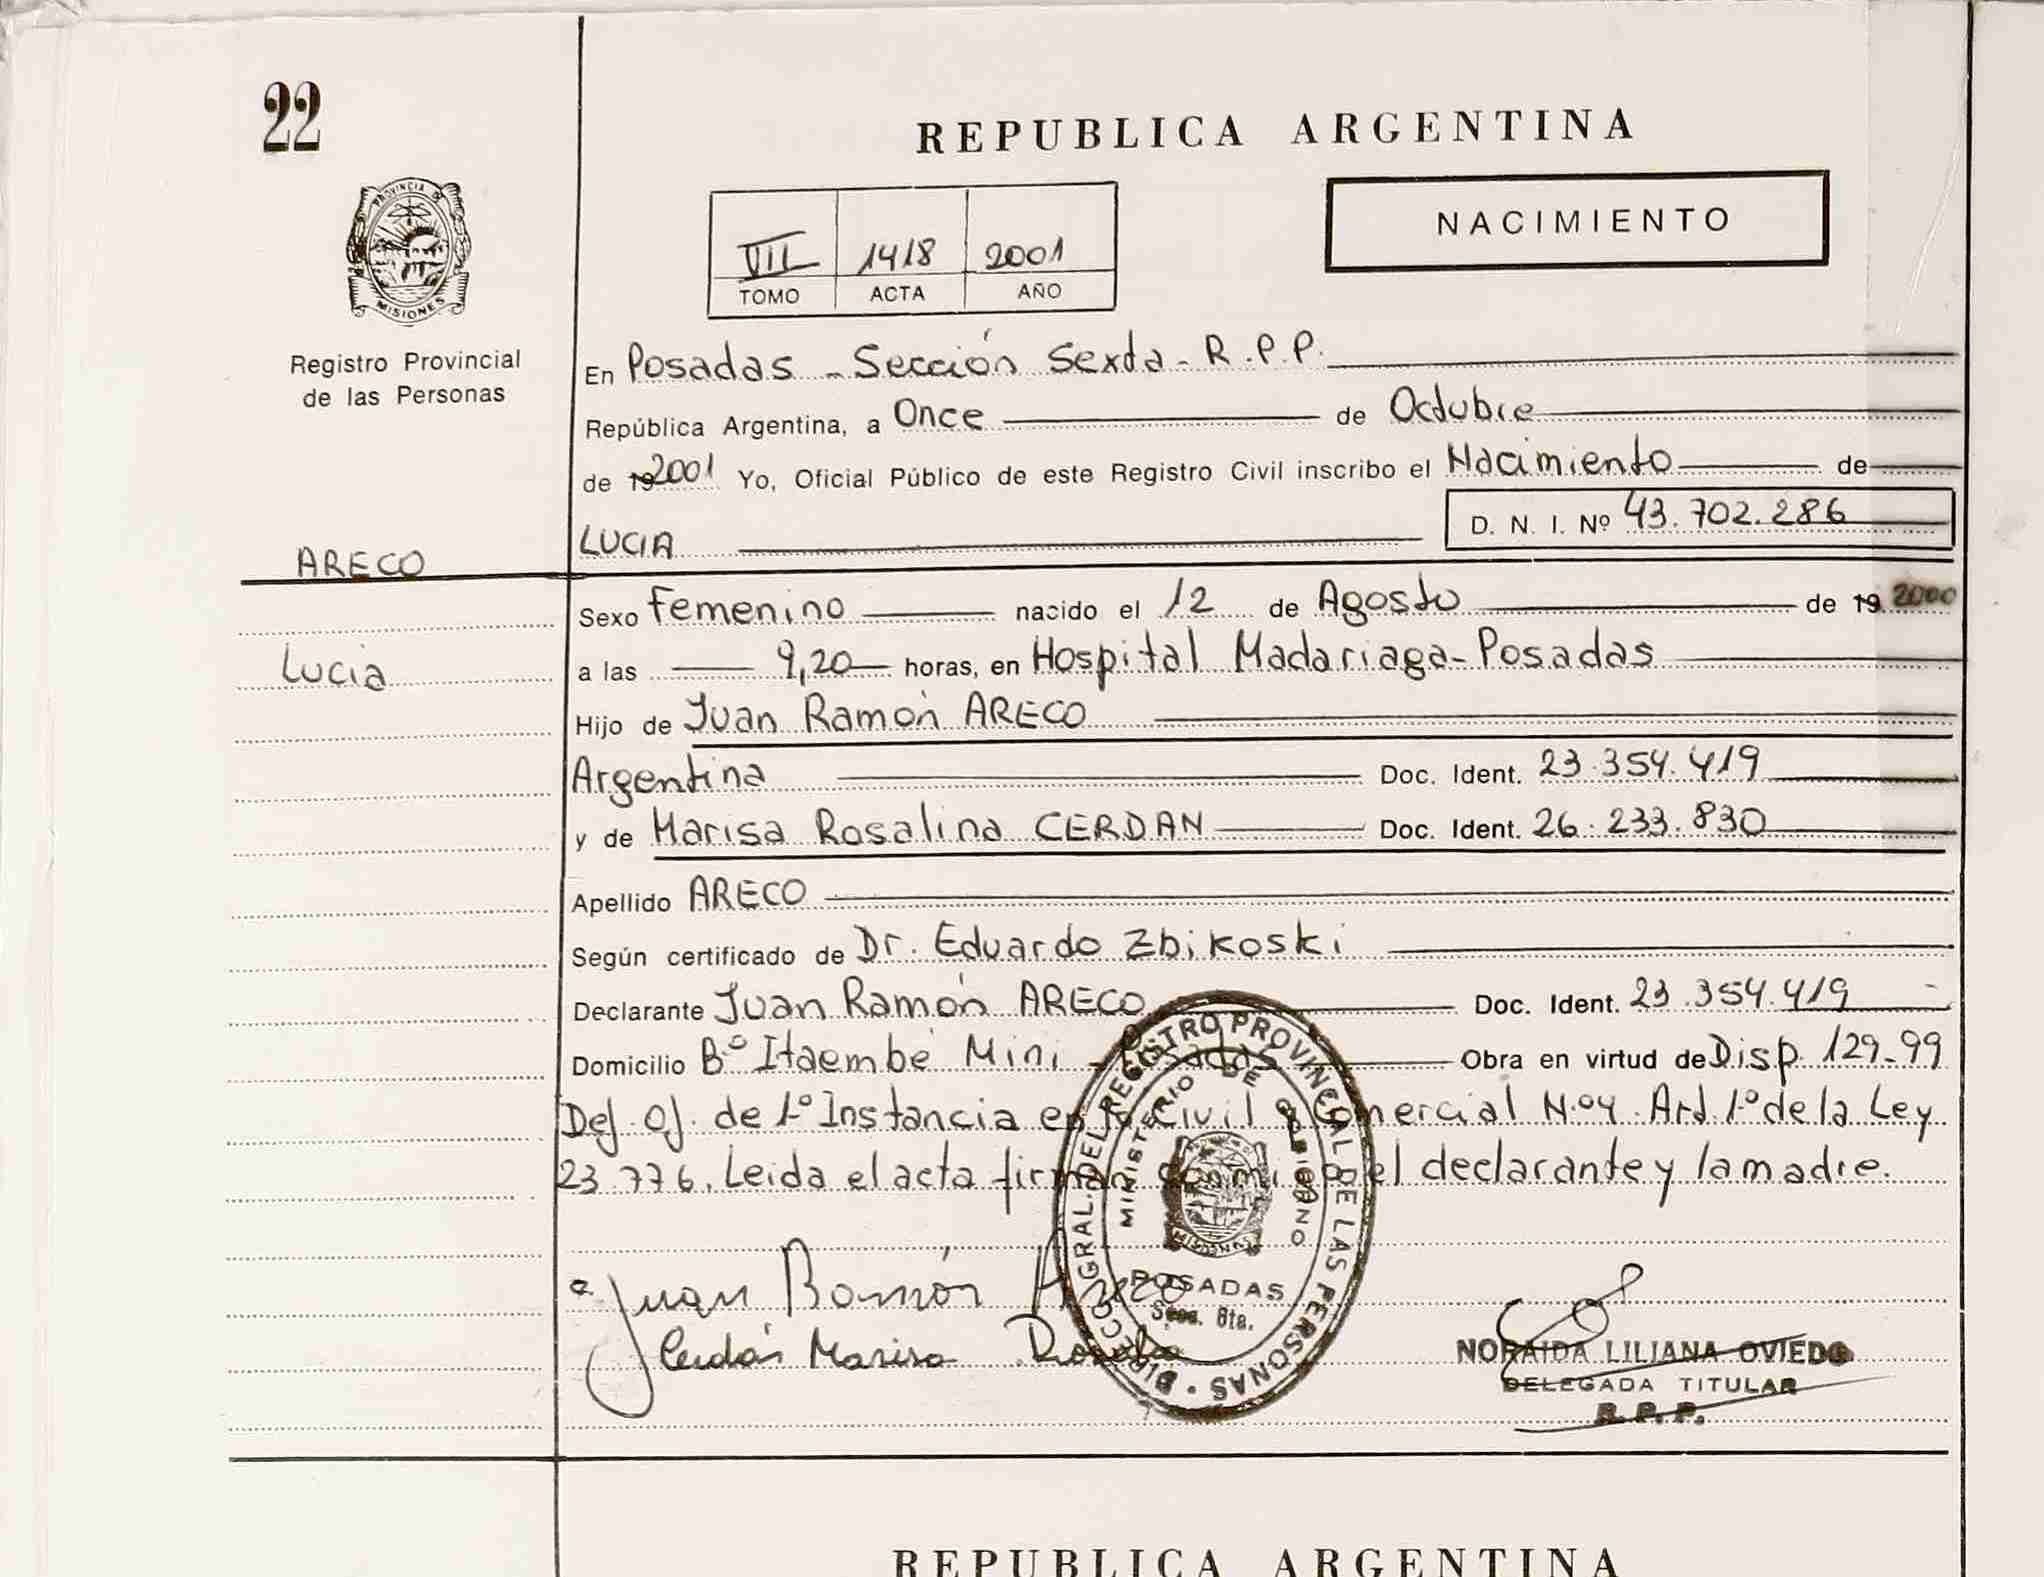 22
REPUBLICA ARGENTINA
PROVINCIA DE
MISIONES
NACIMIENTO
VII 1418 2001
TOMO ACTA AÑO
Registro Provincial
de las Personas
En Posadas - Sección Sexta - R.P.P.
República Argentina, a Once de Octubre
de 192001 Yo, Oficial Público de este Registro Civil inscribo el Nacimiento de
LUCIA D. N. I. Nº 43.702.286
ARECO
Sexo Femenino nacido el 12 de Agosto de 19 2000
Lucia
a las 9,20 horas, en Hospital Madariaga - Posadas
Hijo de Juan Ramón ARECO
Argentina Doc. Ident. 23.354.419
y de Marisa Rosalina CERDAN Doc. Ident. 26.233.830
Apellido ARECO
Según certificado de Dr. Eduardo Zbikoski
Declarante Juan Ramón ARECO Doc. Ident. 23.354.419
Domicilio Bº Itaembé Mini - Posadas Obra en virtud de Disp. 129-99
Def. Of. de 1º Instancia en lo Civil y Comercial N.º4. Art. 1º de la Ley
23.776. Leida el acta firman conmigo el declarante y la madre.
DIRECC. GRAL. DEL REGISTRO PROVINCIAL DE LAS PERSONAS
MINISTERIO DE GOBIERNO
MISIONES
POSADAS
Secc. 6ta.
Juan Ramón Areco
Cerdán Marisa
NORAIDA LILIANA OVIEDO
DELEGADA TITULAR
R. P. P.
REPUBLICA ARGENTINA